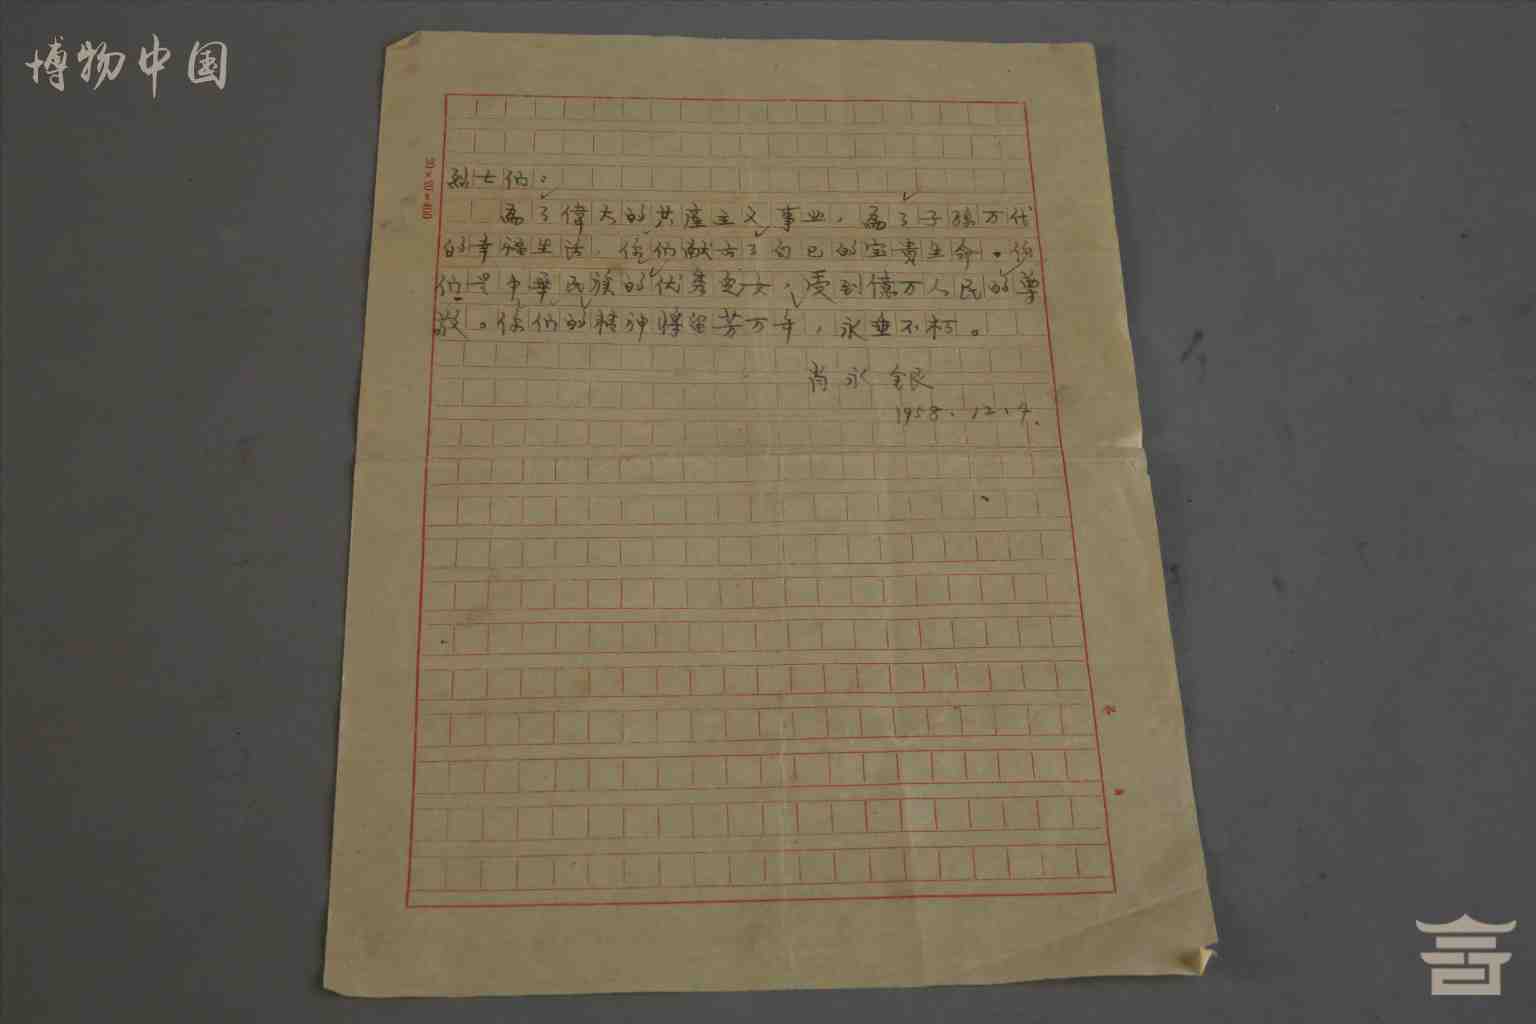 博物中国
20×20=400
烈士们：
为了偉大的共産主义事业，为了子孫万代
的幸福生活，你们献出了自己的宝贵生命。你
们是中華民族的优秀兒女，受到億万人民的尊
敬。你们的精神将留芳万年，永垂不朽。
肖永银
1958.12.4.